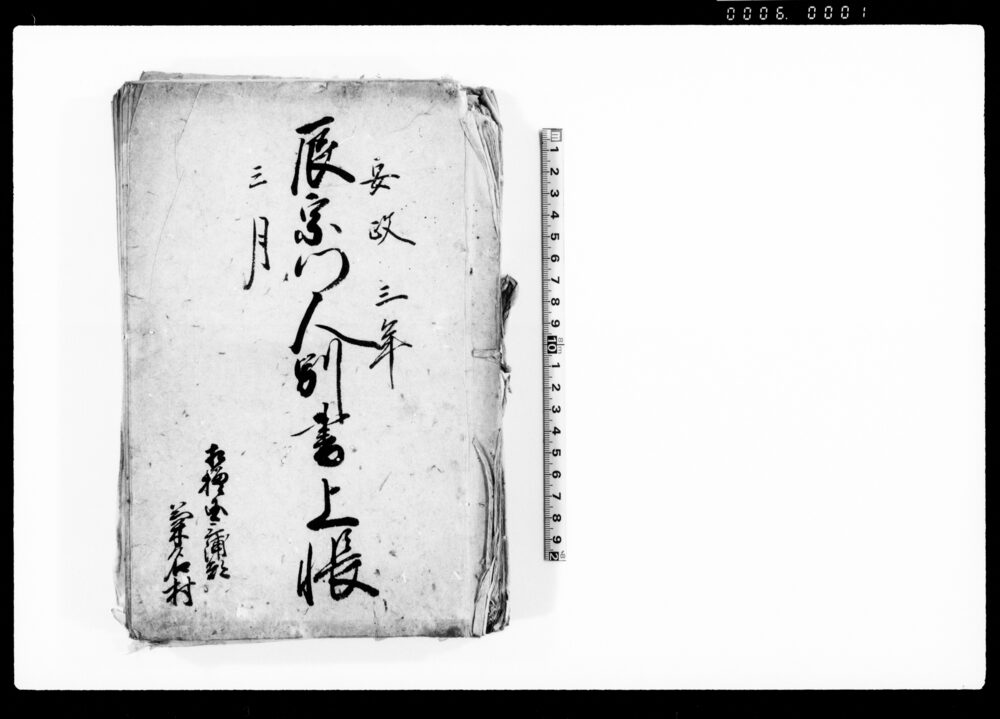 0006. 0001
安政三年
辰宗門人別書上帳
三月
相模国三浦郡
菊名村
1 2 3 4 5 6 7 8 9 10 1 2 3 4 5 6 7 8 9 2